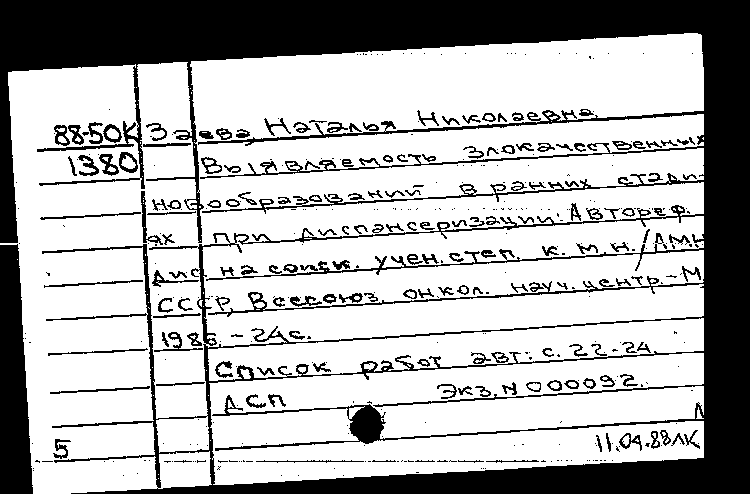 88-50К Заева, Наталья Николаевна.
1380 Выявляемость злокачественных
новообразований в ранних стади-
ях при диспансеризации: Автореф.
дис. на соиск. учен. степ. к. м. н. / АМН
СССР, Всесоюз. онкол. науч. центр. - М.,
1986. - 24 с.
Список работ авт.: с. 22-24.
ДСП Экз. N 000092.
5 11.04.88 ЛК